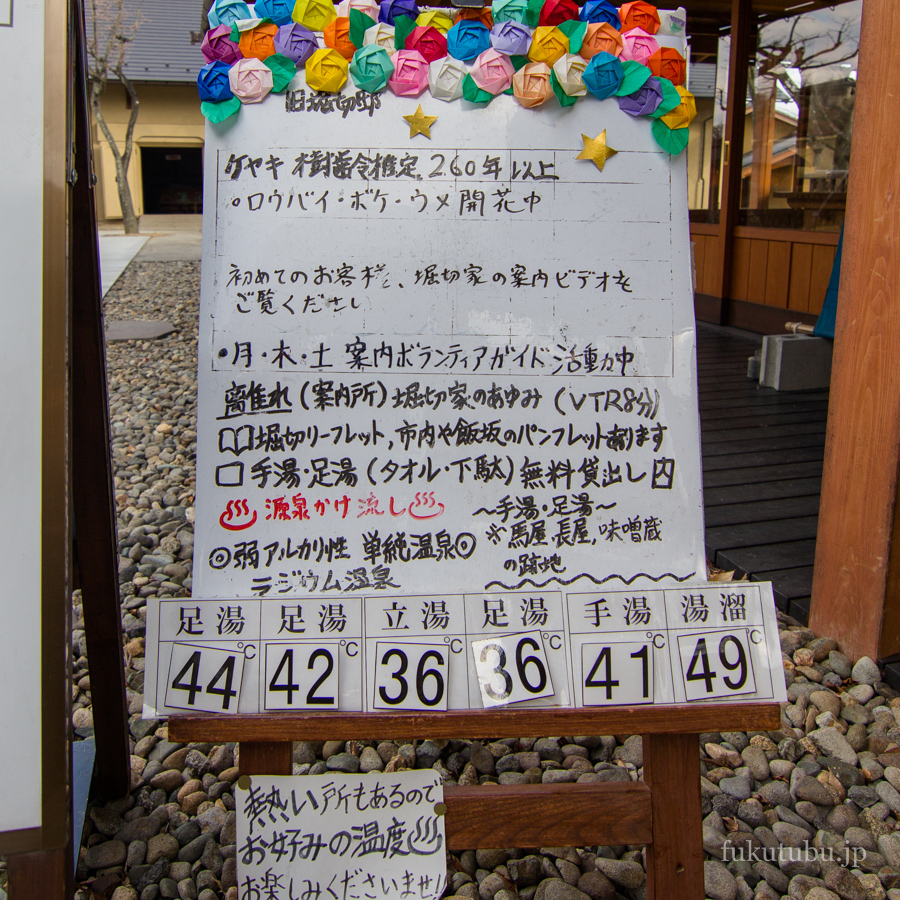 旧堀切邸
ケヤキ 樹齢推定 260年以上
・ロウバイ・ボケ・ウメ開花中
初めてのお客様、堀切家の案内ビデオを
ご覧ください
・月・木・土 案内ボランティアガイド活動中
離れ(案内所)堀切家のあゆみ(VTR8分)
堀切リーフレット,市内や飯坂のパンフレットあります
□手湯・足湯(タオル・下駄)無料貸出し
♨源泉かけ流し♨
◎弱アルカリ性 単純温泉◎
ラジウム温泉
〜手湯・足湯〜
※馬屋,長屋,味噌蔵
の跡地
足湯 足湯 立湯 足湯 手湯 湯溜
44℃ 42℃ 36℃ 36℃ 41℃ 49℃
熱い所もあるので
お好みの温度♨
お楽しみくださいませ!
fukutubu.jp